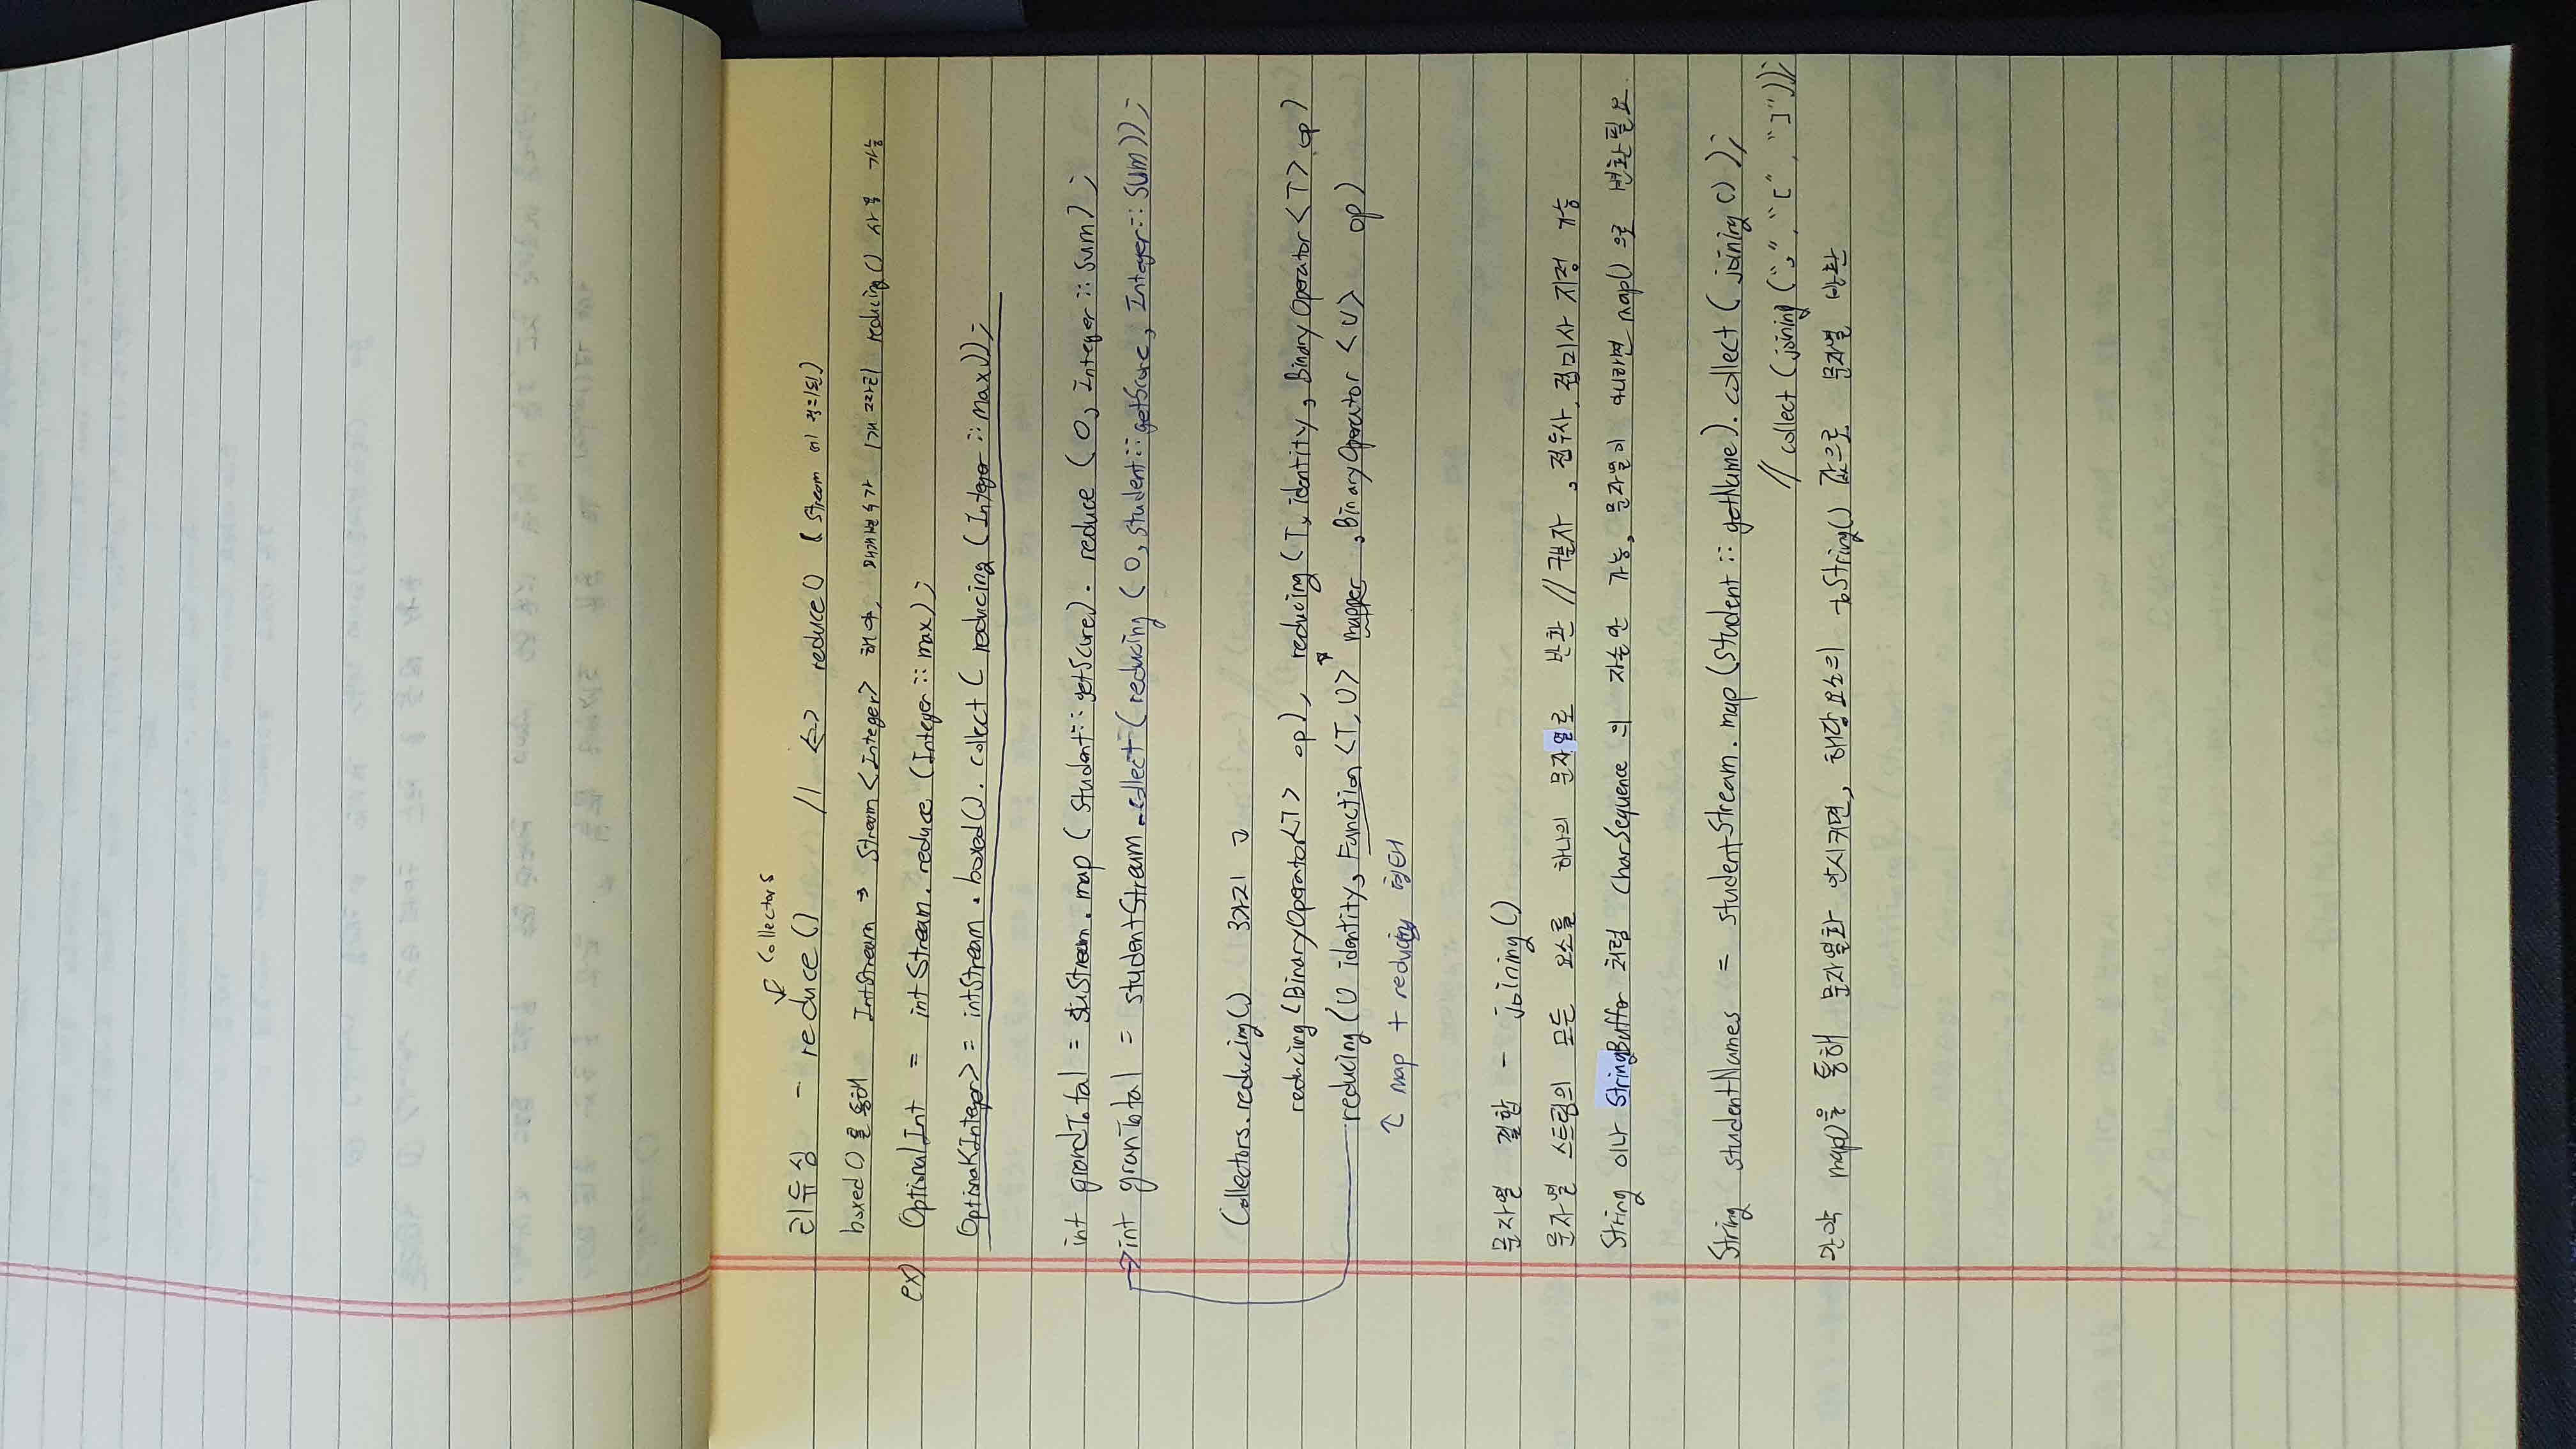 ↙ Collectors
리듀싱 - reduce() // <=> reduce() (Stream에 정의된)
boxed()를 통해 IntStream → Stream<Integer> 해야, 매개변수가 1개 짜리 reducing() 사용 가능
ex) OptionalInt = intStream.reduce (Integer::max);
Optional<Integer> = intStream.boxed().collect( reducing (Integer::max));
int grandTotal = stuStream.map (Student::getScore).reduce (0, Integer::sum);
int granTotal = studentStream.collect (reducing (0, student::getScore, Integer::sum));
Collectors.reducing() 3가지
reducing (BinaryOperator<T> op), reducing (T, identity, BinaryOperator<T> op)
reducing (U identity, Function<T, U> mapper, BinaryOperator<U> op)
↑ map + reducing 형태
문자열 결합 - joining()
문자열 스트림의 모든 요소를 하나의 문자열로 반환 // 구분자, 접두사, 접미사 지정 가능
String 이나 StringBuffer 처럼 CharSequence의 자손만 가능, 문자열이 아니라면 map()으로 변환필요.
String studentNames = studentStream.map (Student::getName).collect( joining());
// collect (joining (",", "[", "]"));
만약 map()을 통해 문자열화 안시키면, 해당요소의 toString() 값으로 문자열 반환